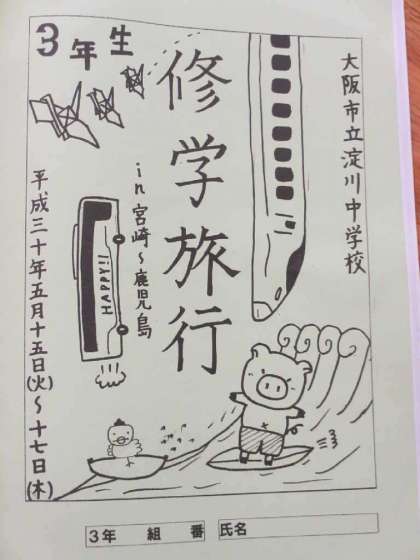 大阪市立淀川中学校
3年生
修学旅行
in 宮崎〜鹿児島
HAPPY!!
平成三十年五月十五日(火)〜十七日(木)
3年 組 番 氏名